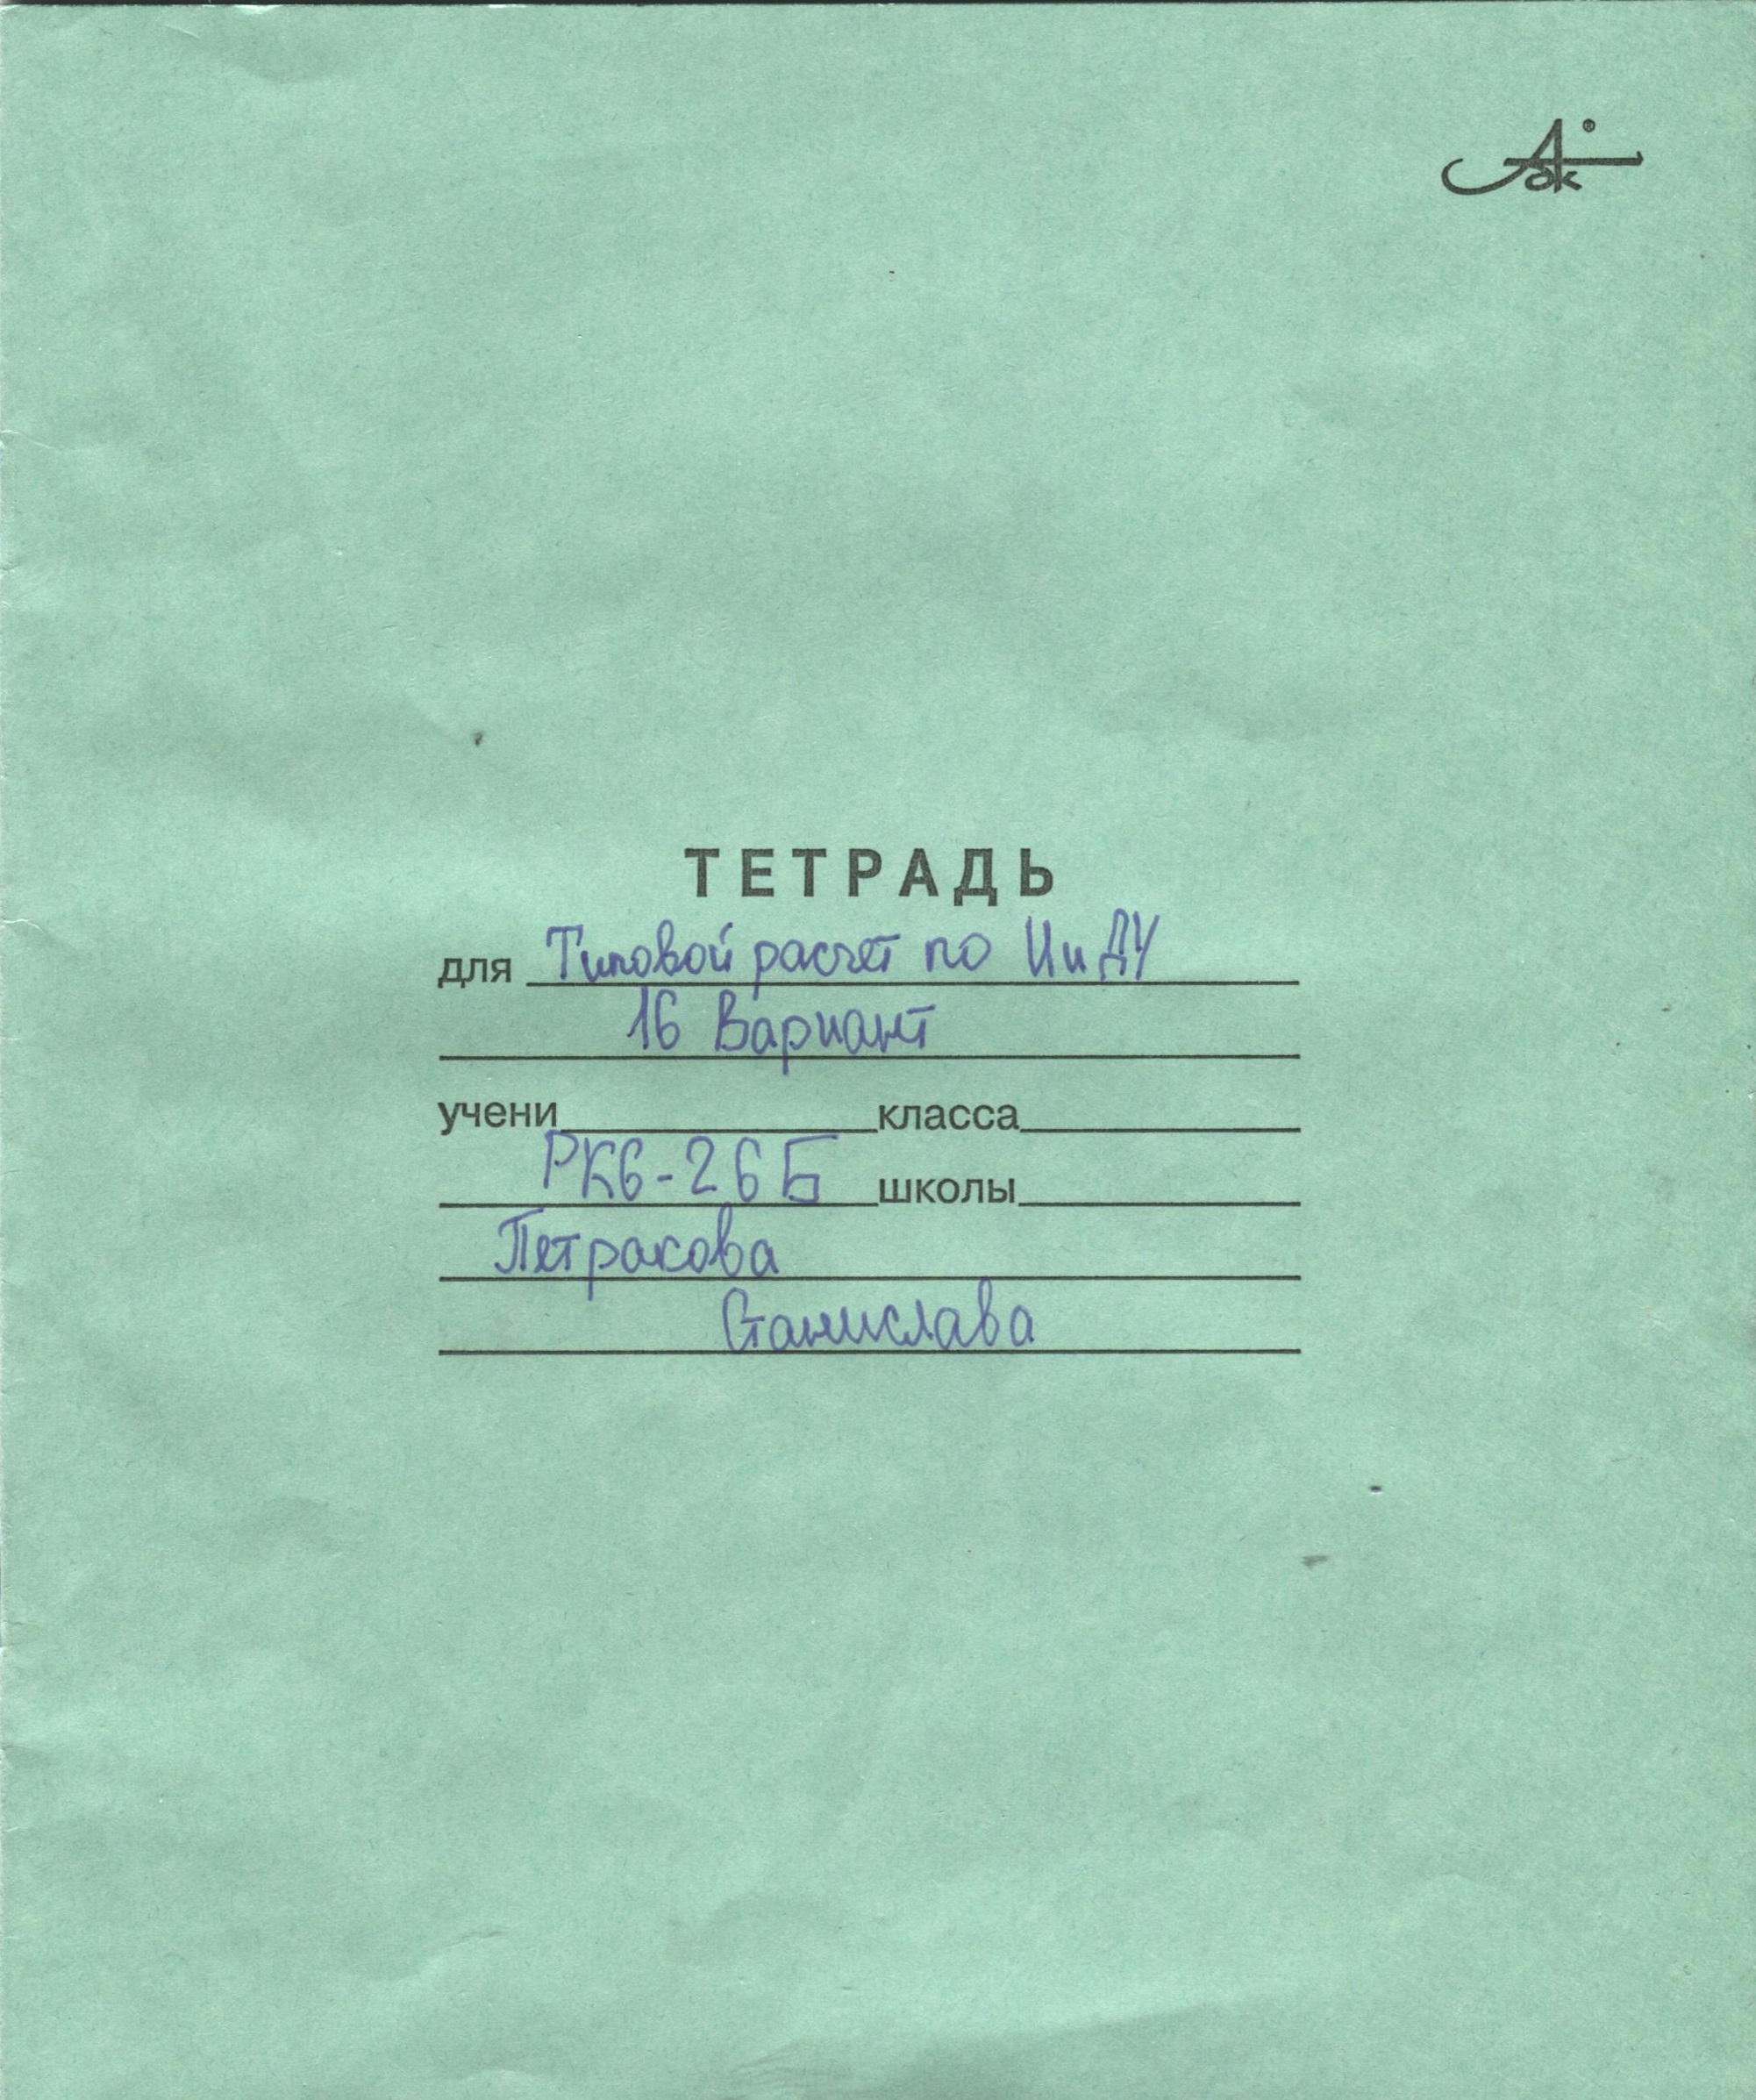 Аок®
ТЕТРАДЬ
для Типовой расчет по ИиДУ
16 Вариант
учени класса
РК6-26Б школы
Петракова
Станислава